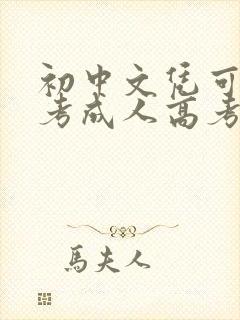 初中文凭可
考成人高考
馬夫人